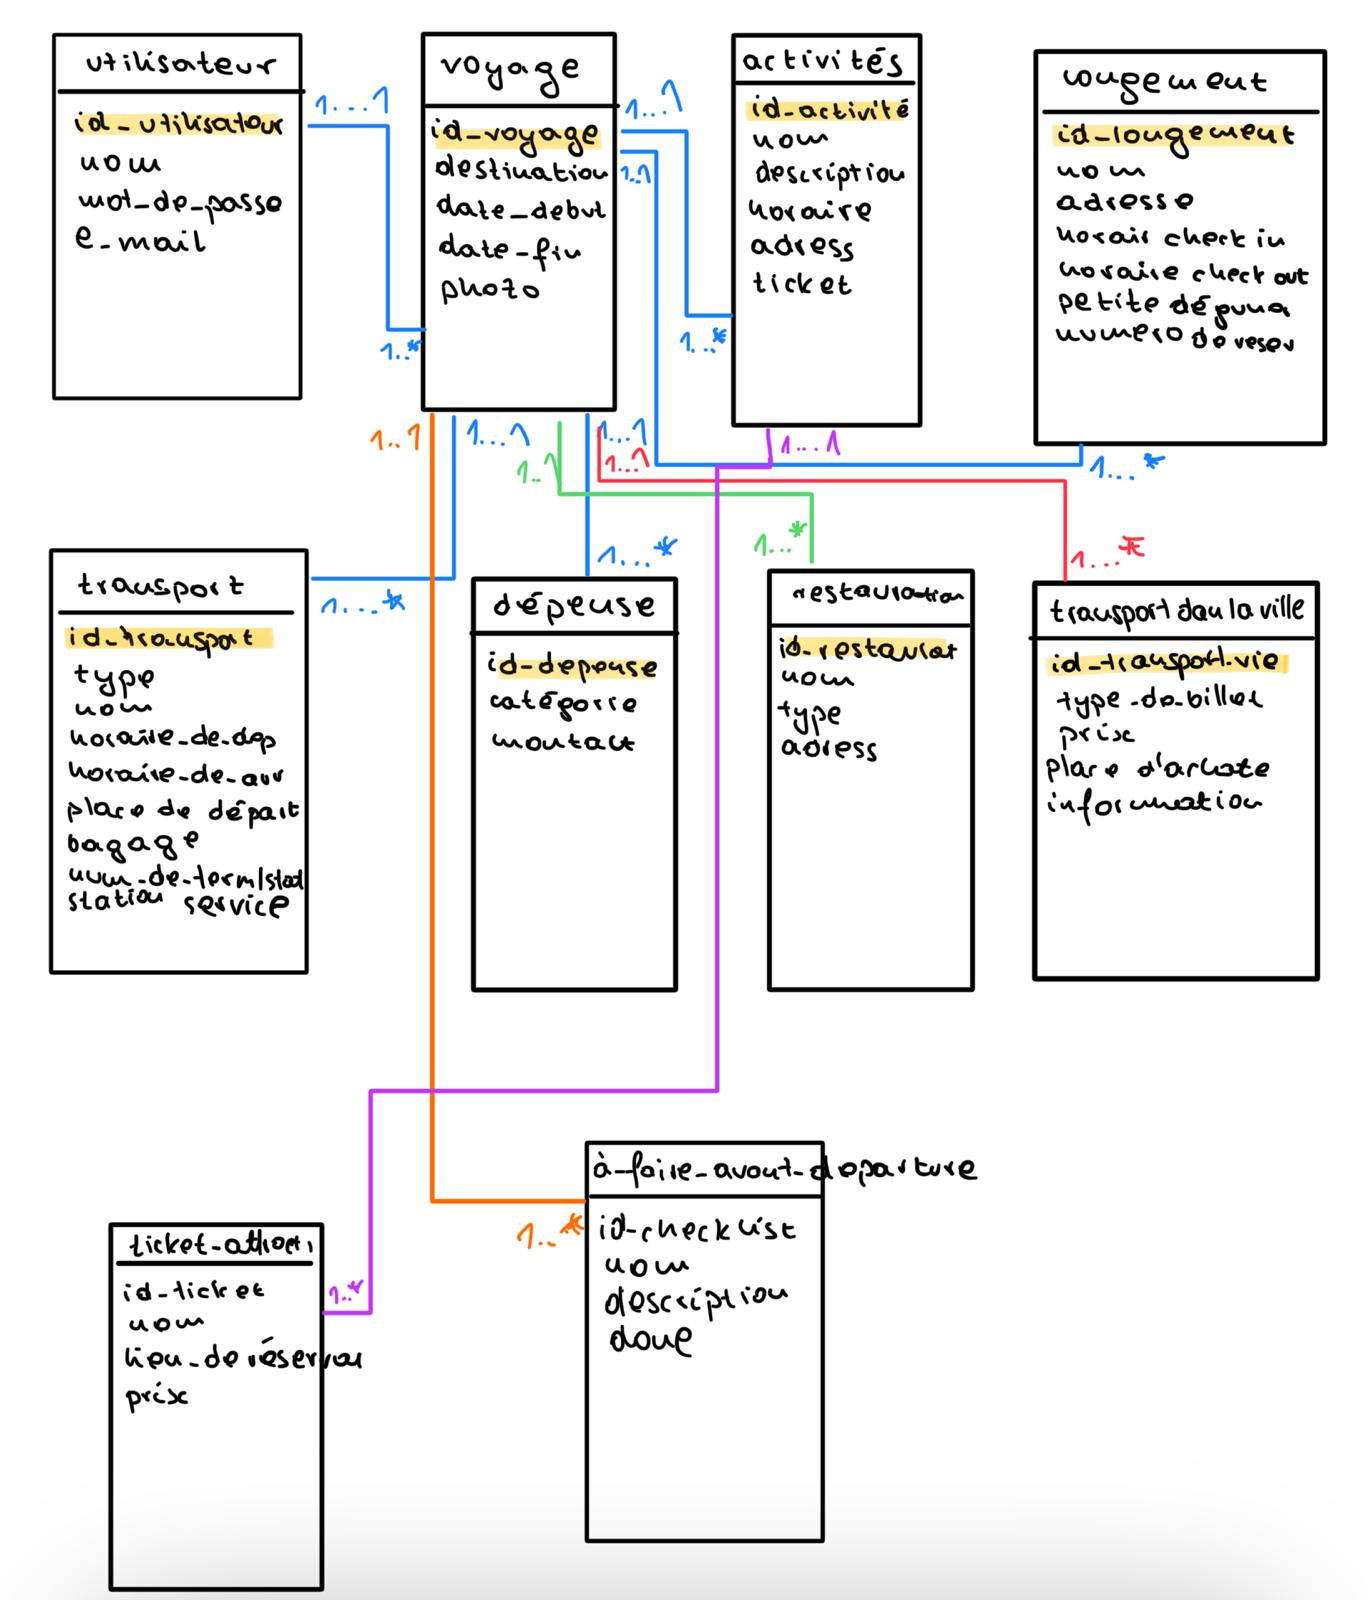 utilisateur
id_utilisateur
nom
mot_de_passe
e_mail
1...1
1..*
voyage
id_voyage
destination
date_debut
date_fin
photo
1...1
1..1
activités
id_activité
nom
description
horaire
adress
ticket
1...*
lougement
id_lougement
nom
adresse
horair check in
horaire check out
petite dépuner
numero de reser
1..1
1...1
1..1
1...1
1...1
1...1
1...*
transport
id_transport
type
nom
horaire_de_dep
horaire_de_arr
place de départ
bagage
num_de_term/stat
station service
1...*
1...*
dépense
id_depense
catégorie
montact
1...*
restauration
id_restaurat
nom
type
adress
1...*
transport dan la ville
id_transport.vie
type_de_billet
prix
place d'achate
information
à_faire_avant_departure
id_checklist
nom
description
done
1...*
ticket_attract
id_ticket
nom
lieu_de réservat
prix
1..*